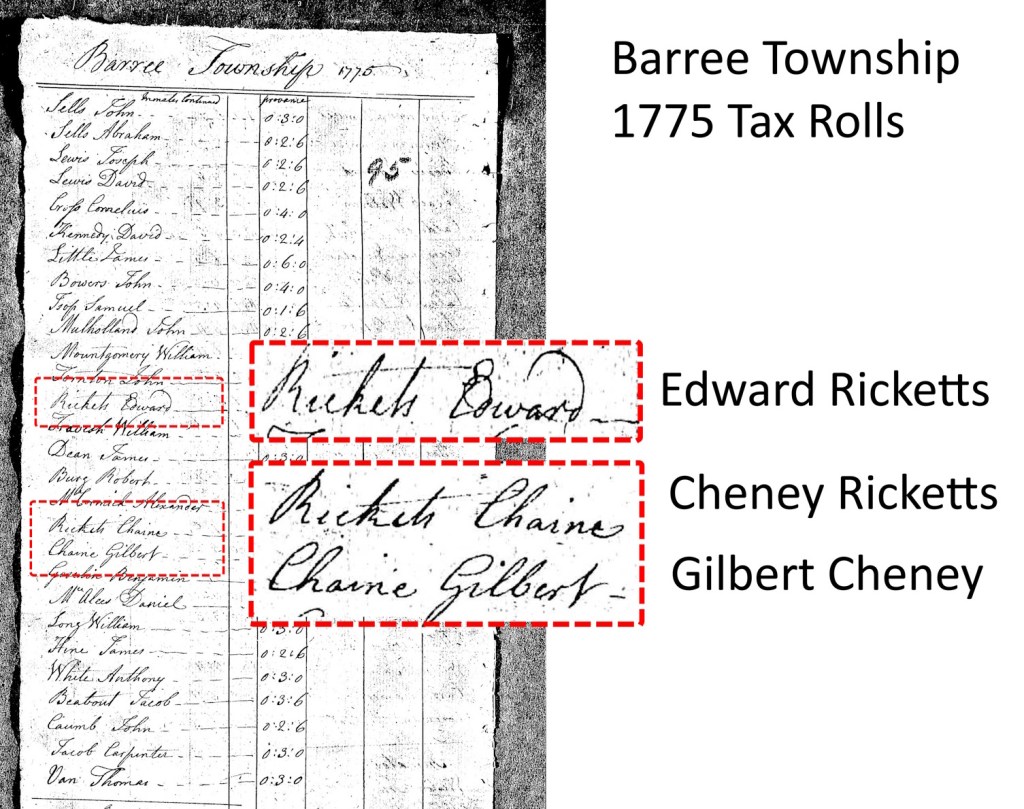 Barree Township 1775
Inmates Continued provence
Sells John 0:3:0
Sells Abraham 0:2:6
Lewis Joseph 0:2:6
95
Lewis David 0:2:6
Cross Cornelius 0:4:0
Kennedy David 0:2:4
Little James 0:6:0
Bowers John 0:4:0
Toop Samuel 0:1:6
Mulholland John 0:2:6
Mountgomery William
John
Rickets Edward
William
Dean James 0:3:0
Burg Robert
Alexander
Rickets Chaine
Chaine Gilbert
Benjamin
Daniel
Long William 0:3:0
Hine James 0:2:6
White Anthony 0:3:0
Beabout Jacob 0:3:6
Caumb John 0:2:6
Jacob Carpenter 0:3:0
Van Thomas 0:3:0
Rickets Edward
Rickets Chaine
Chaine Gilbert
Barree Township
1775 Tax Rolls
Edward Ricketts
Cheney Ricketts
Gilbert Cheney